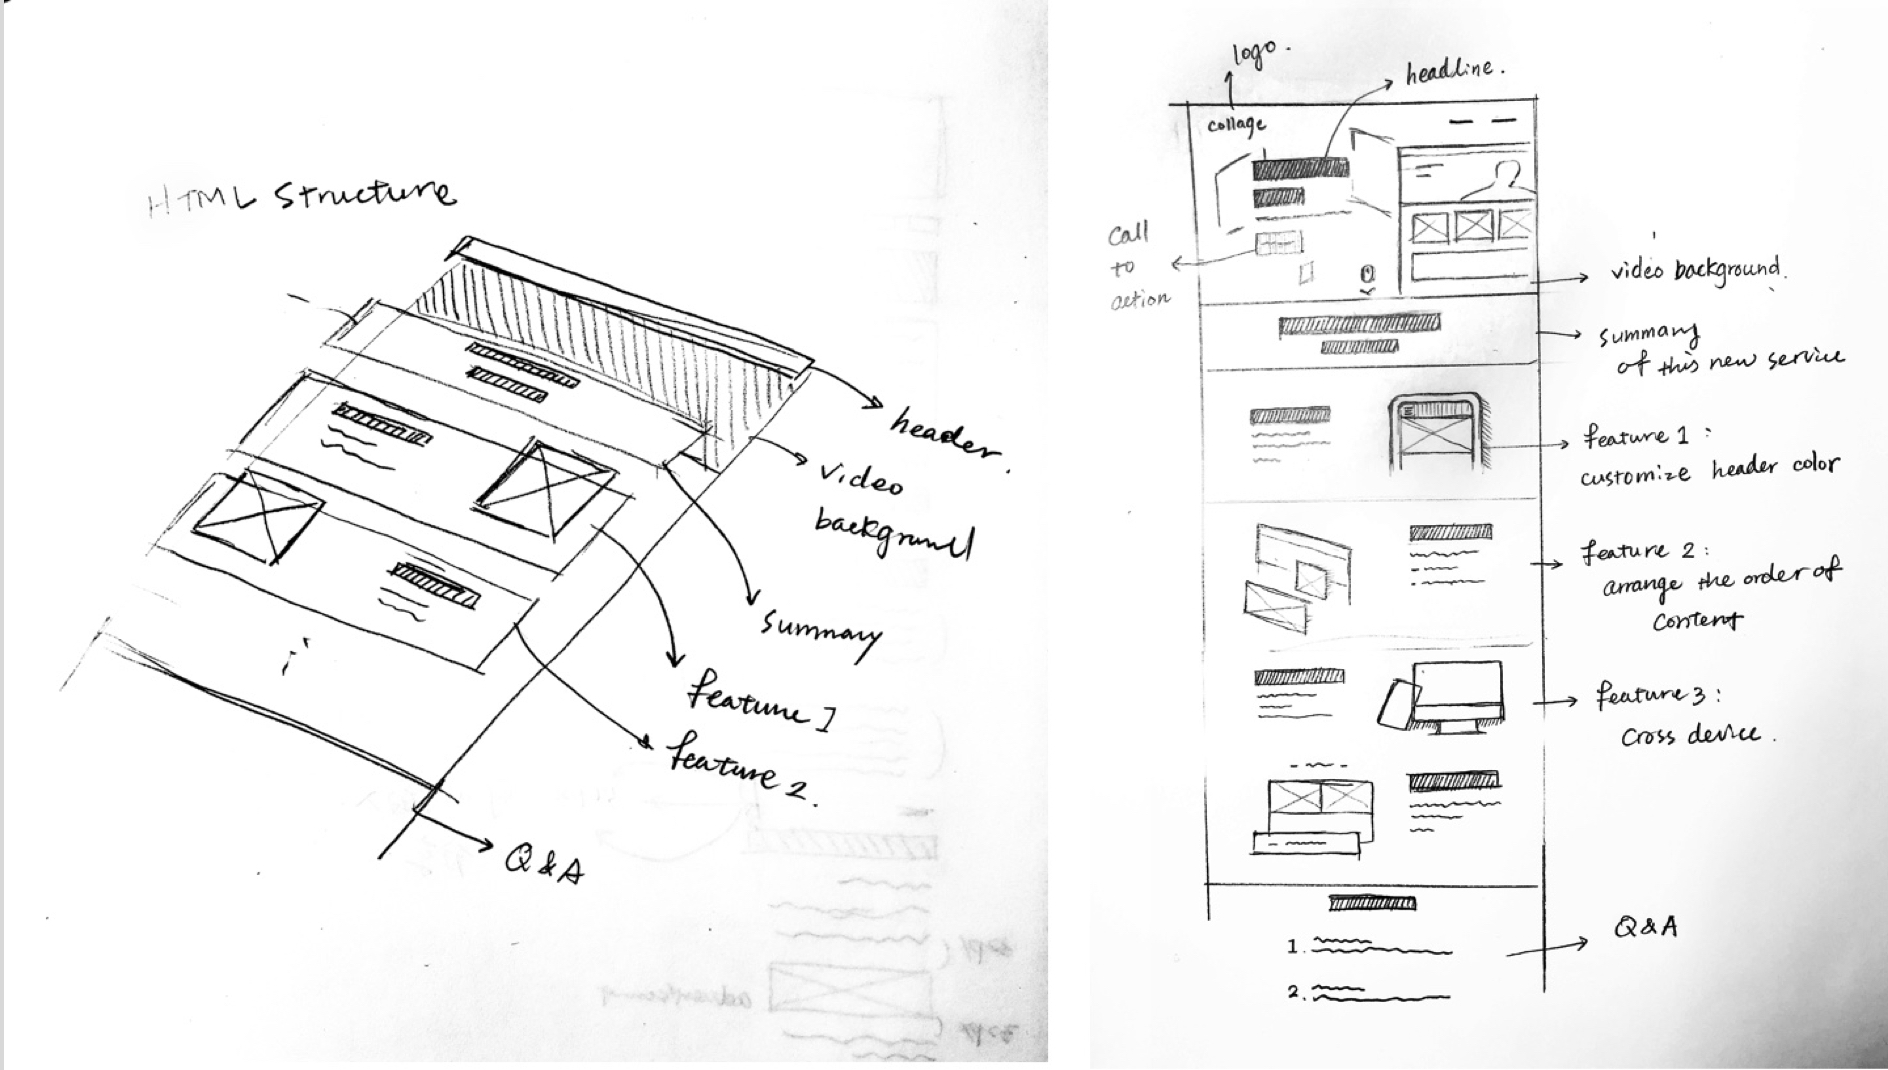 HTML Structure
header.
video
background
Summary
feature 1
feature 2.
Q & A
logo.
headline.
collage
call
to
action
video background.
summary
of this new service
feature 1 :
customize header color
feature 2 :
arrange the order of
content
feature 3 :
cross device .
1.
2.
Q & A